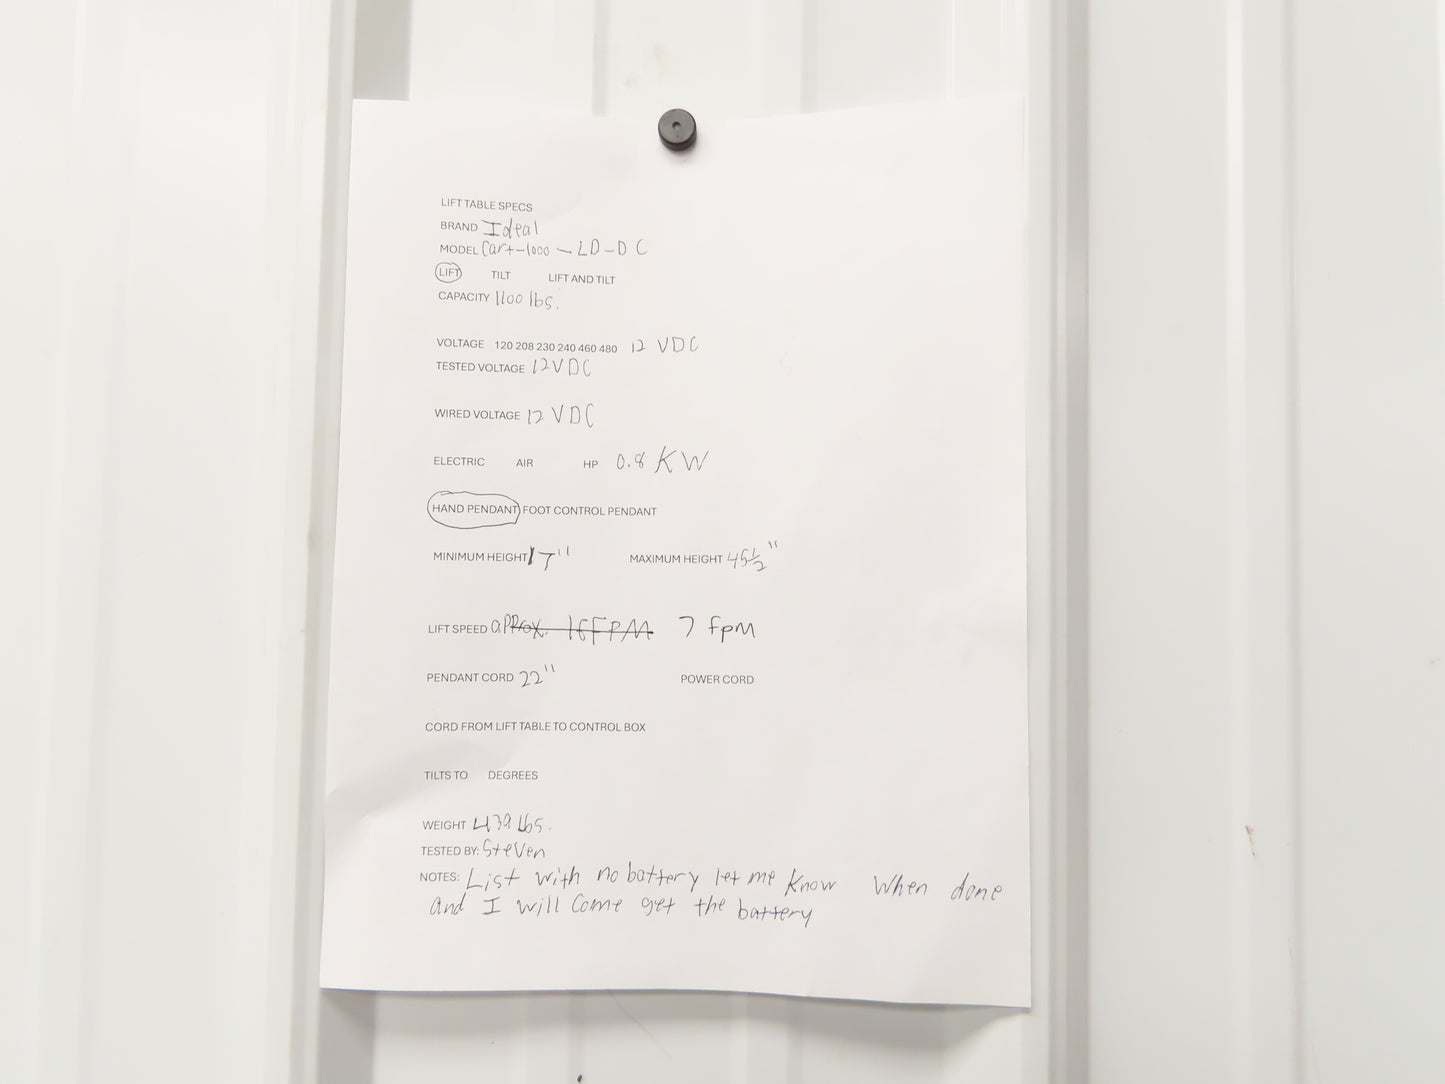 LIFT TABLE SPECS
BRAND Ideal
MODEL Cart-1000-LD-DC
LIFT TILT LIFT AND TILT
CAPACITY 1100 lbs.
VOLTAGE 120 208 230 240 460 480 12 VDC
TESTED VOLTAGE 12VDC
WIRED VOLTAGE 12 VDC
ELECTRIC AIR HP 0.8 KW
HAND PENDANT FOOT CONTROL PENDANT
MINIMUM HEIGHT 17" MAXIMUM HEIGHT 45 1/2"
LIFT SPEED approx. 16FPM 7 fpm
PENDANT CORD 22" POWER CORD
CORD FROM LIFT TABLE TO CONTROL BOX
TILTS TO DEGREES
WEIGHT 439 lbs.
TESTED BY: Steven
NOTES: List with no battery let me know When done
and I will Come get the battery